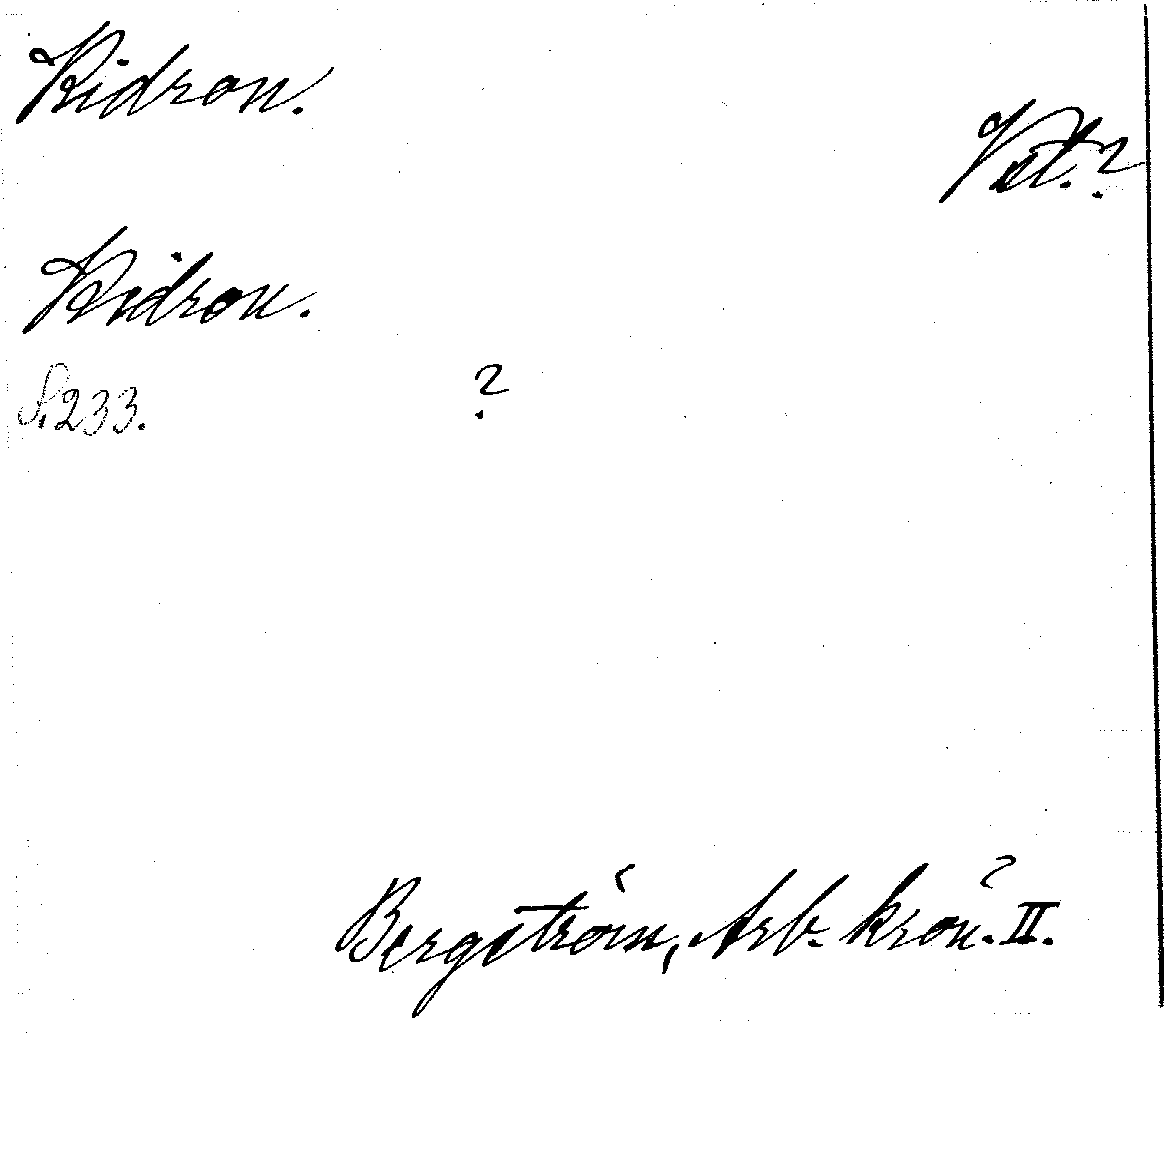 Kidron.
Vst.?
Kidron.
S. 233. ?
Bergström, Arb. krön. II.